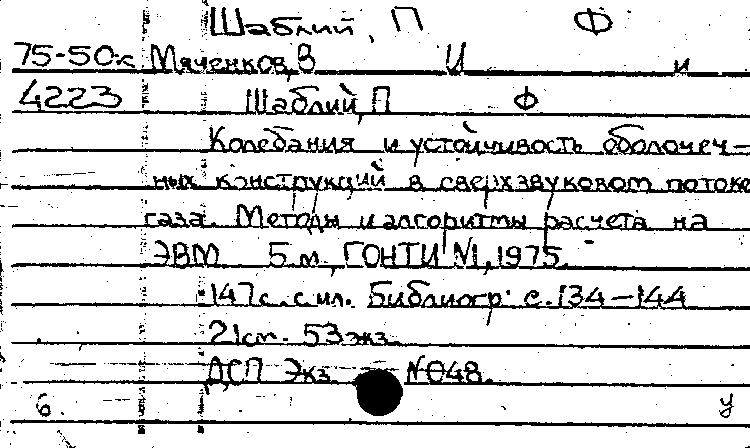 Шаблий, П Ф
75-50с Мяченков, В И и
4223 Шаблий, П Ф
Колебания и устойчивость оболочеч-
ных конструкций в сверхзвуковом потоке
газа. Методы и алгоритмы расчета на
ЭВМ Б.м., ГОНТИ №1, 1975.
147с. с ил. Библиогр: с. 134-144
21см. 53экз.
ДСП Экз №048.
б. У